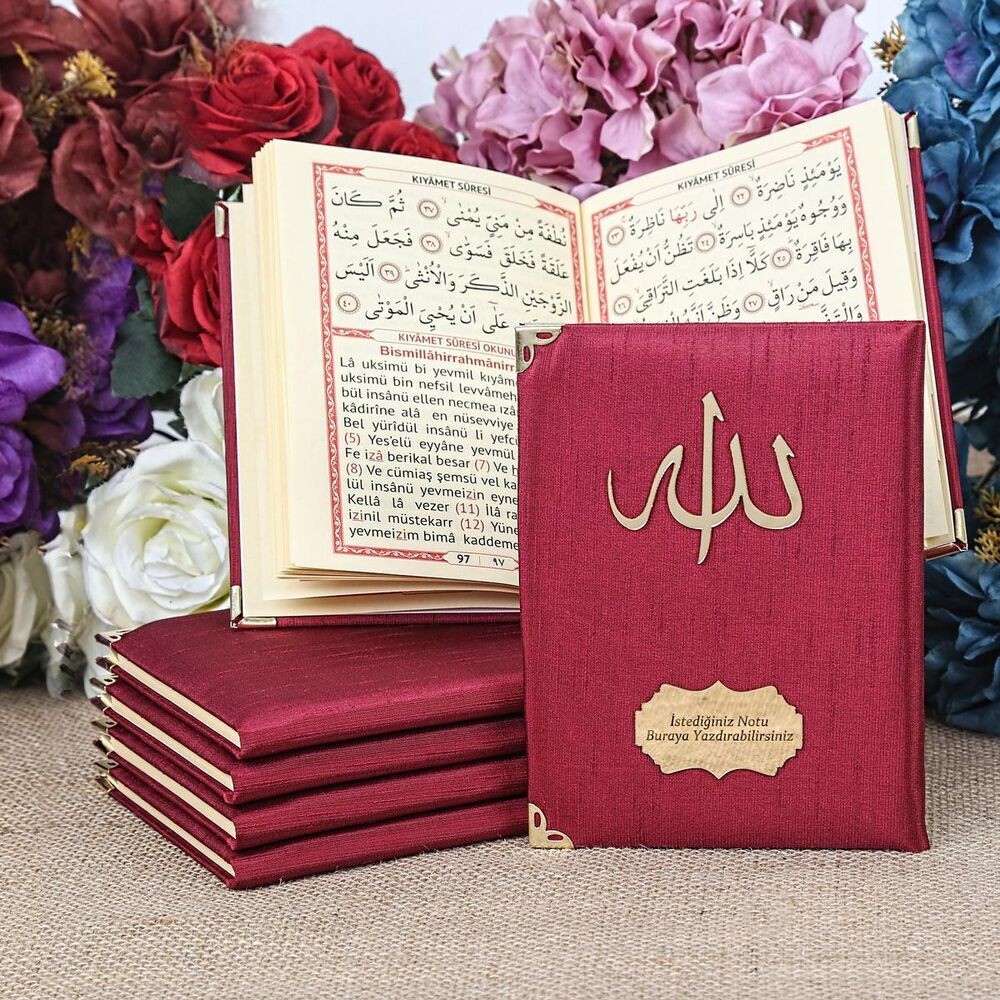 KIYÂMET SÛRESİ
نُطْفَةً مِنْ مَنِيٍّ يُمْنٰىۙ ﴿٣٧﴾ ثُمَّ كَانَ
عَلَقَةً فَخَلَقَ فَسَوّٰىۙ ﴿٣٨﴾ فَجَعَلَ مِنْهُ
الزَّوْجَيْنِ الذَّكَرَ وَالْاُنْثٰىۜ ﴿٣٩﴾ اَلَيْسَ
عَلٰٓى اَنْ يُحْيِيَ الْمَوْتٰى ﴿٤٠﴾
KIYÂMET SÛRESİ OKUNU
Bismillâhirrahmânirr
Lâ uksimü bi yevmil kıyâme
uksimü bin nefsil levvâmeh
bül insânü ellen necmea ızâ
kâdirîne alâ en nüsevviye
Bel yürîdül insânü li yefcü
(5) Yes'elü eyyâne yevmül
Fe izâ berikal besar (7) Ve h
(8) Ve cümiaş şemsü vel ka
lül insânü yevmeizin eyne
Kellâ lâ vezer (11) İlâ ra
izinil müstekarr (12) Yüne
yevmeizim bimâ kaddeme
97 ٩٧
KIYÂMET SÛRESİ
يَوْمَئِذٍ نَاضِرَةٌۙ ﴿٢٢﴾ اِلٰى رَبِّهَا نَاظِرَةٌۚ ﴿٢٣﴾
وَوُجُوهٌ يَوْمَئِذٍ بَاسِرَةٌۙ ﴿٢٤﴾ تَظُنُّ اَنْ يُفْعَلَ
بِهَا فَاقِرَةٌۜ ﴿٢٥﴾ كَلَّٓا اِذَا بَلَغَتِ التَّرَاقِيَۙ ﴿٢٦﴾
وَقِيلَ مَنْ رَاقٍۙ ﴿٢٧﴾ وَظَنَّ اَنَّهُ
الله
İstediğiniz Notu
Buraya Yazdırabilirsiniz